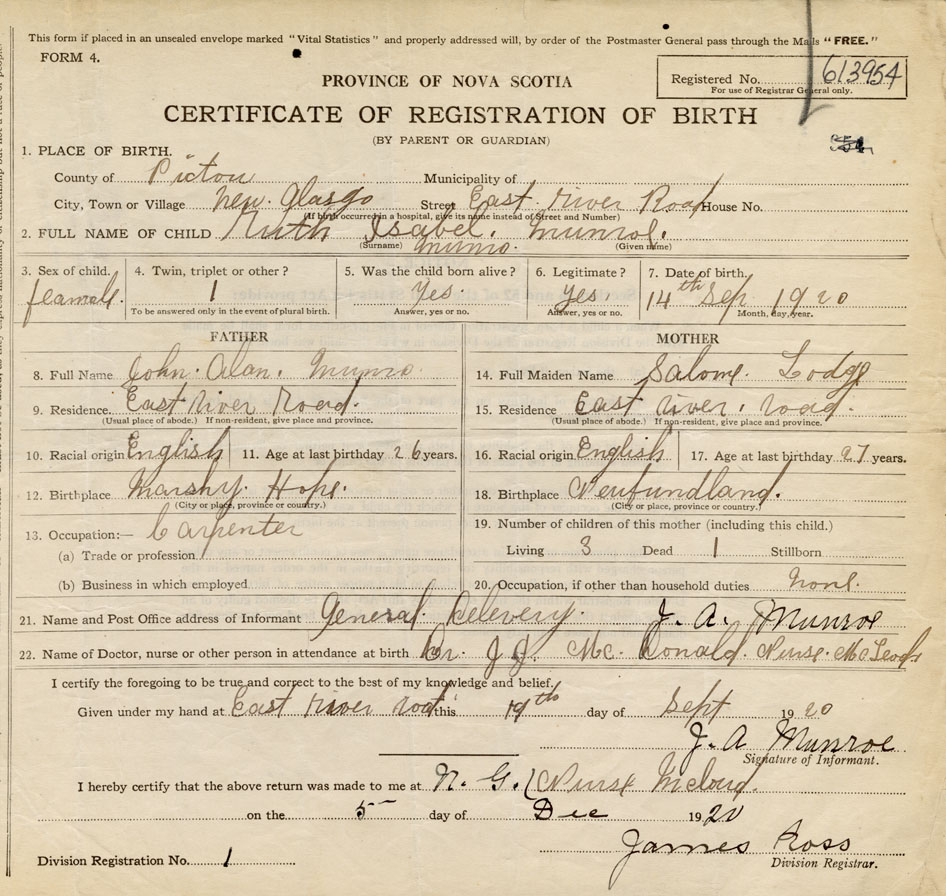 This form if placed in an unsealed envelope marked "Vital Statistics" and properly addressed will, by order of the Postmaster General pass through the Mails "FREE."
FORM 4.
PROVINCE OF NOVA SCOTIA
Registered No. 613954
For use of Registrar General only.
CERTIFICATE OF REGISTRATION OF BIRTH
(BY PARENT OR GUARDIAN)
1. PLACE OF BIRTH.
County of Pictou Municipality of
City, Town or Village New Glasgo Street East River Road House No.
(If birth occurred in a hospital, give its name instead of Street and Number)
2. FULL NAME OF CHILD Ruth Isabel. Munroe.
(Surname) Munro. (Given name)
3. Sex of child. 4. Twin, triplet or other? 5. Was the child born alive? 6. Legitimate? 7. Date of birth.
feamell. 1 Yes Yes, 14th Sep 1920
To be answered only in the event of plural birth. Answer, yes or no. Answer, yes or no. Month, day, year.
FATHER MOTHER
8. Full Name John. Alan. Munro. 14. Full Maiden Name Salome. Lodge
9. Residence. East River Road. 15. Residence East river. road.
(Usual place of abode.) If non-resident, give place and province. (Usual place of abode.) If non-resident, give place and province.
10. Racial origin English 11. Age at last birthday 26 years. 16. Racial origin English 17. Age at last birthday 27 years.
12. Birthplace Marshy. Hope. 18. Birthplace Neufundland.
(City or place, province or country.) (City or place, province or country.)
13. Occupation:— Carpenter 19. Number of children of this mother (including this child.)
(a) Trade or profession Living 3 Dead 1 Stillborn
(b) Business in which employed 20. Occupation, if other than household duties None.
21. Name and Post Office address of Informant General. Delevery. J. A. Munroe
22. Name of Doctor, nurse or other person in attendance at birth Dr. J. J. Mc. Donald. Nurse. McLeod
I certify the foregoing to be true and correct to the best of my knowledge and belief.
Given under my hand at East River road this 19th day of Sept 1920
J. A Munroe
Signature of Informant.
I hereby certify that the above return was made to me at N. G. (Nurse Mcloud.
on the 5 day of Dec 1920
James Ross
Division Registrar.
Division Registration No. 1